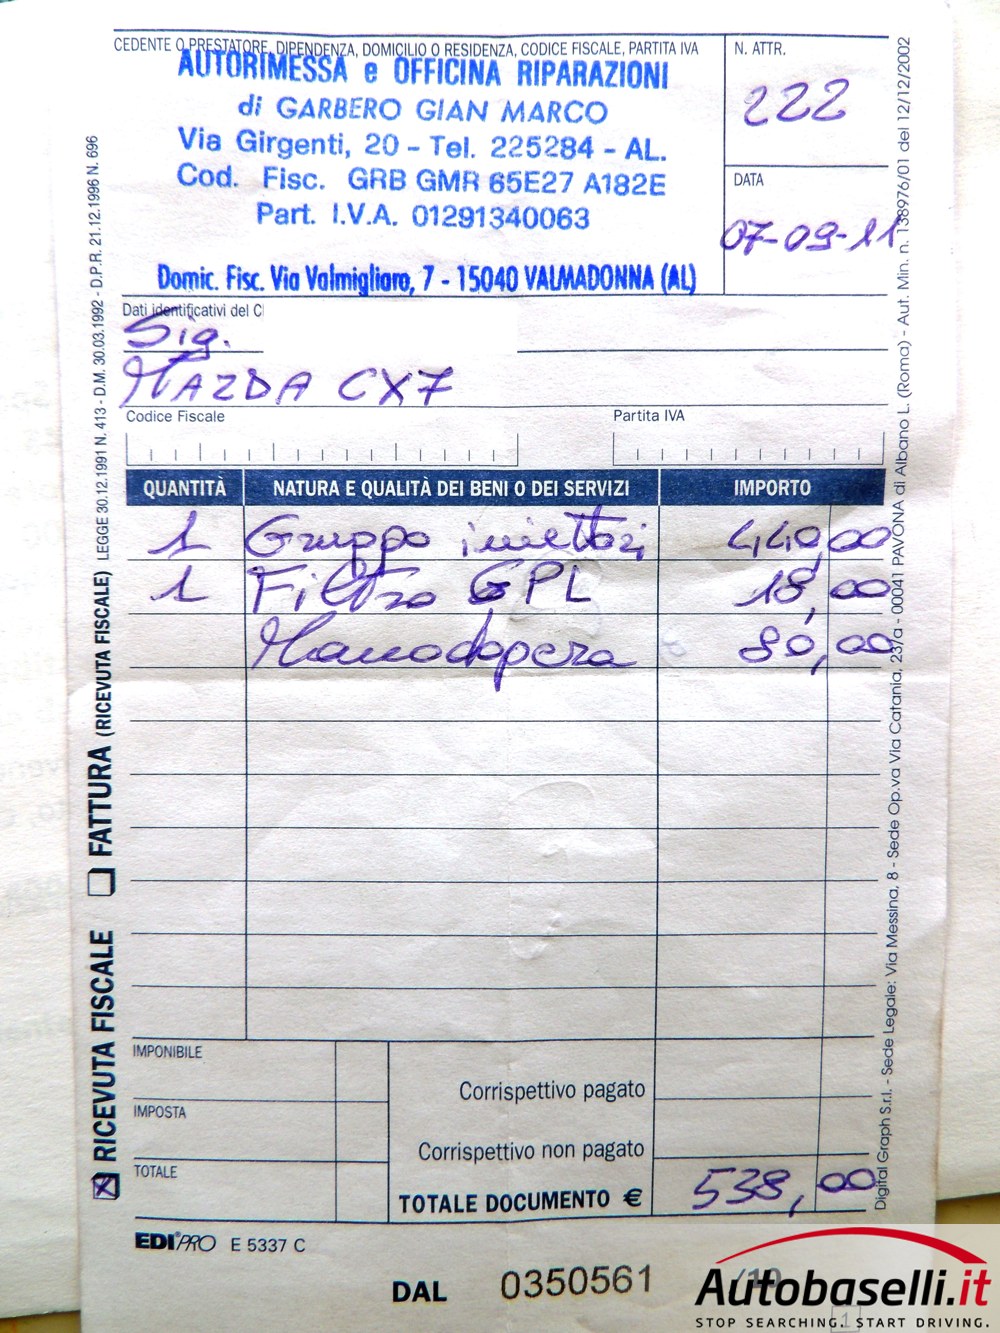 CEDENTE O PRESTATORE, DIPENDENZA, DOMICILIO O RESIDENZA, CODICE FISCALE, PARTITA IVA
AUTORIMESSA e OFFICINA RIPARAZIONI
di GARBERO GIAN MARCO
Via Girgenti, 20 - Tel. 225284 - AL.
Cod. Fisc. GRB GMR 65E27 A182E
Part. I.V.A. 01291340063
Domic. Fisc. Via Valmigliaro, 7 - 15040 VALMADONNA (AL)
N. ATTR.
222
DATA
07-09-11
Dati identificativi del C
Sig.
MAZDA CX7
Codice Fiscale
Partita IVA
QUANTITÀ NATURA E QUALITÀ DEI BENI O DEI SERVIZI IMPORTO
1 Gruppo iniettori 440,00
1 Filtro GPL 18,00
Manodopera 80,00
IMPONIBILE
Corrispettivo pagato
IMPOSTA
Corrispettivo non pagato
TOTALE
TOTALE DOCUMENTO € 538,00
EDIPRO E 5337 C
DAL 0350561 /10
1
X RICEVUTA FISCALE FATTURA (RICEVUTA FISCALE) LEGGE 30.12.1991 N. 413 - D.M. 30.03.1992 - D.P.R. 21.12.1996 N. 696
Digital Graph S.r.l. - Sede Legale: Via Messina, 8 - Sede Op.va Via Catania, 23/a - 00041 PAVONA di Albano L. (Roma) - Aut. Min. n. 138976/01 del 12/12/2002
Autobaselli.it
STOP SEARCHING. START DRIVING.